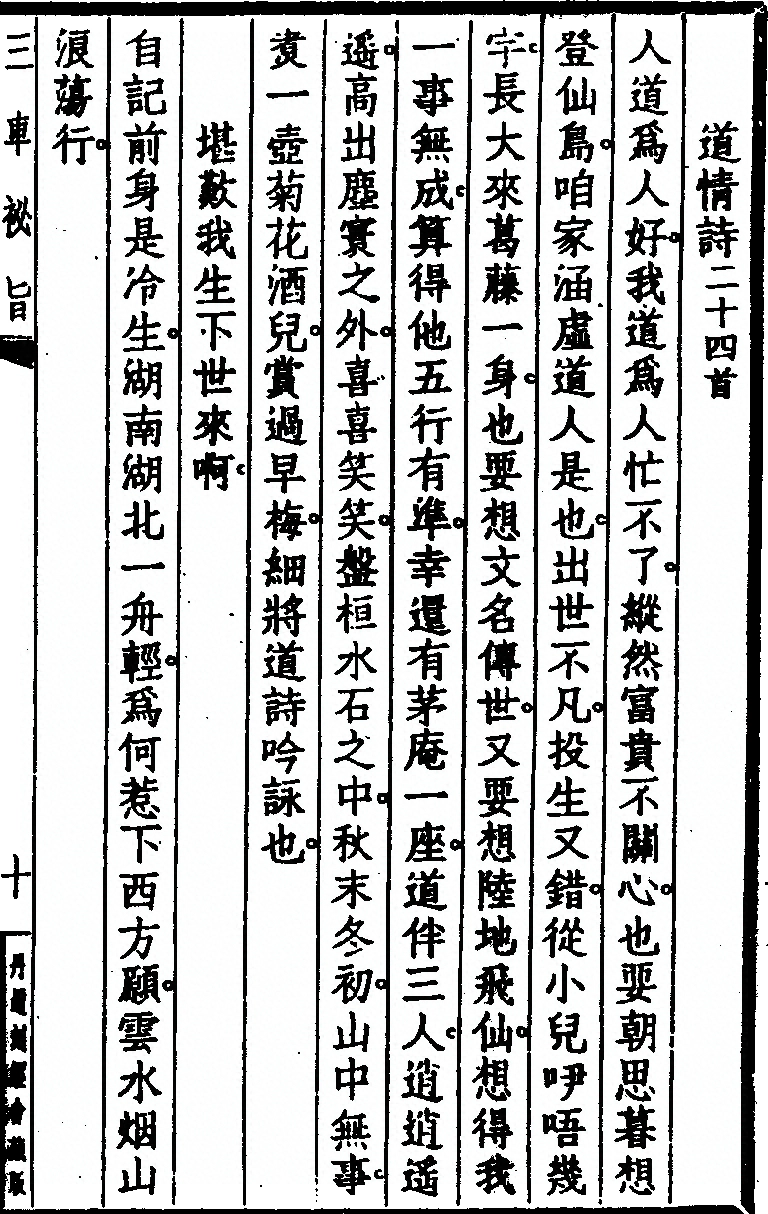 道情詩二十四首
人道爲人好。我道爲人忙不了。縱然富貴不關心。也要朝思暮想
登仙島。咱家涵虛道人是也。出世不凡。投生又錯。從小兒咿唔幾
字。長大來葛藤一身。也要想文名傳世。又要想陸地飛仙。想得我
一事無成。算得他五行有準。幸還有茅庵一座。道伴三人。逍逍遥
遥。高出塵寰之外。喜喜笑笑。盤桓水石之中。秋末冬初。山中無事。
煑一壺菊花酒兒。賞過早梅。細將道詩吟詠也。
堪歎我生下世來啊。
自記前身是冷生。湖南湖北一舟輕。爲何惹下西方願。雲水烟山
浪蕩行。
三車祕旨
十
丹道刻經會藏版